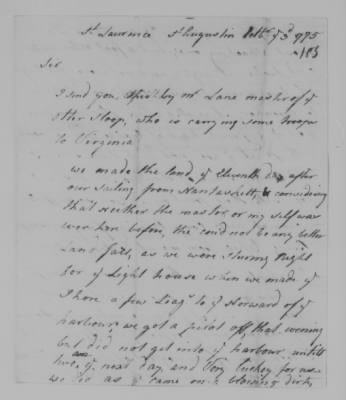 St Lawrence St Augustin Octbr ye 3d 1775
Sir
I send you this by mr Lane master of ye
other Sloop, who is carrying some troops
to Virginia
we made the land ye Eleventh day after
our sailing from Nantaskett, & considering
that neither the master or my self was
ever here before, there could not be any better
Land fall, as we were stearing Right
for ye Light house when we made it
I hove a few Leags to ye Norward of ye
harbour, we got a pilot off that evening
but did not get into ye harbour untill
ye next day, and very luckey for us
we did as it came on a blowing dirty